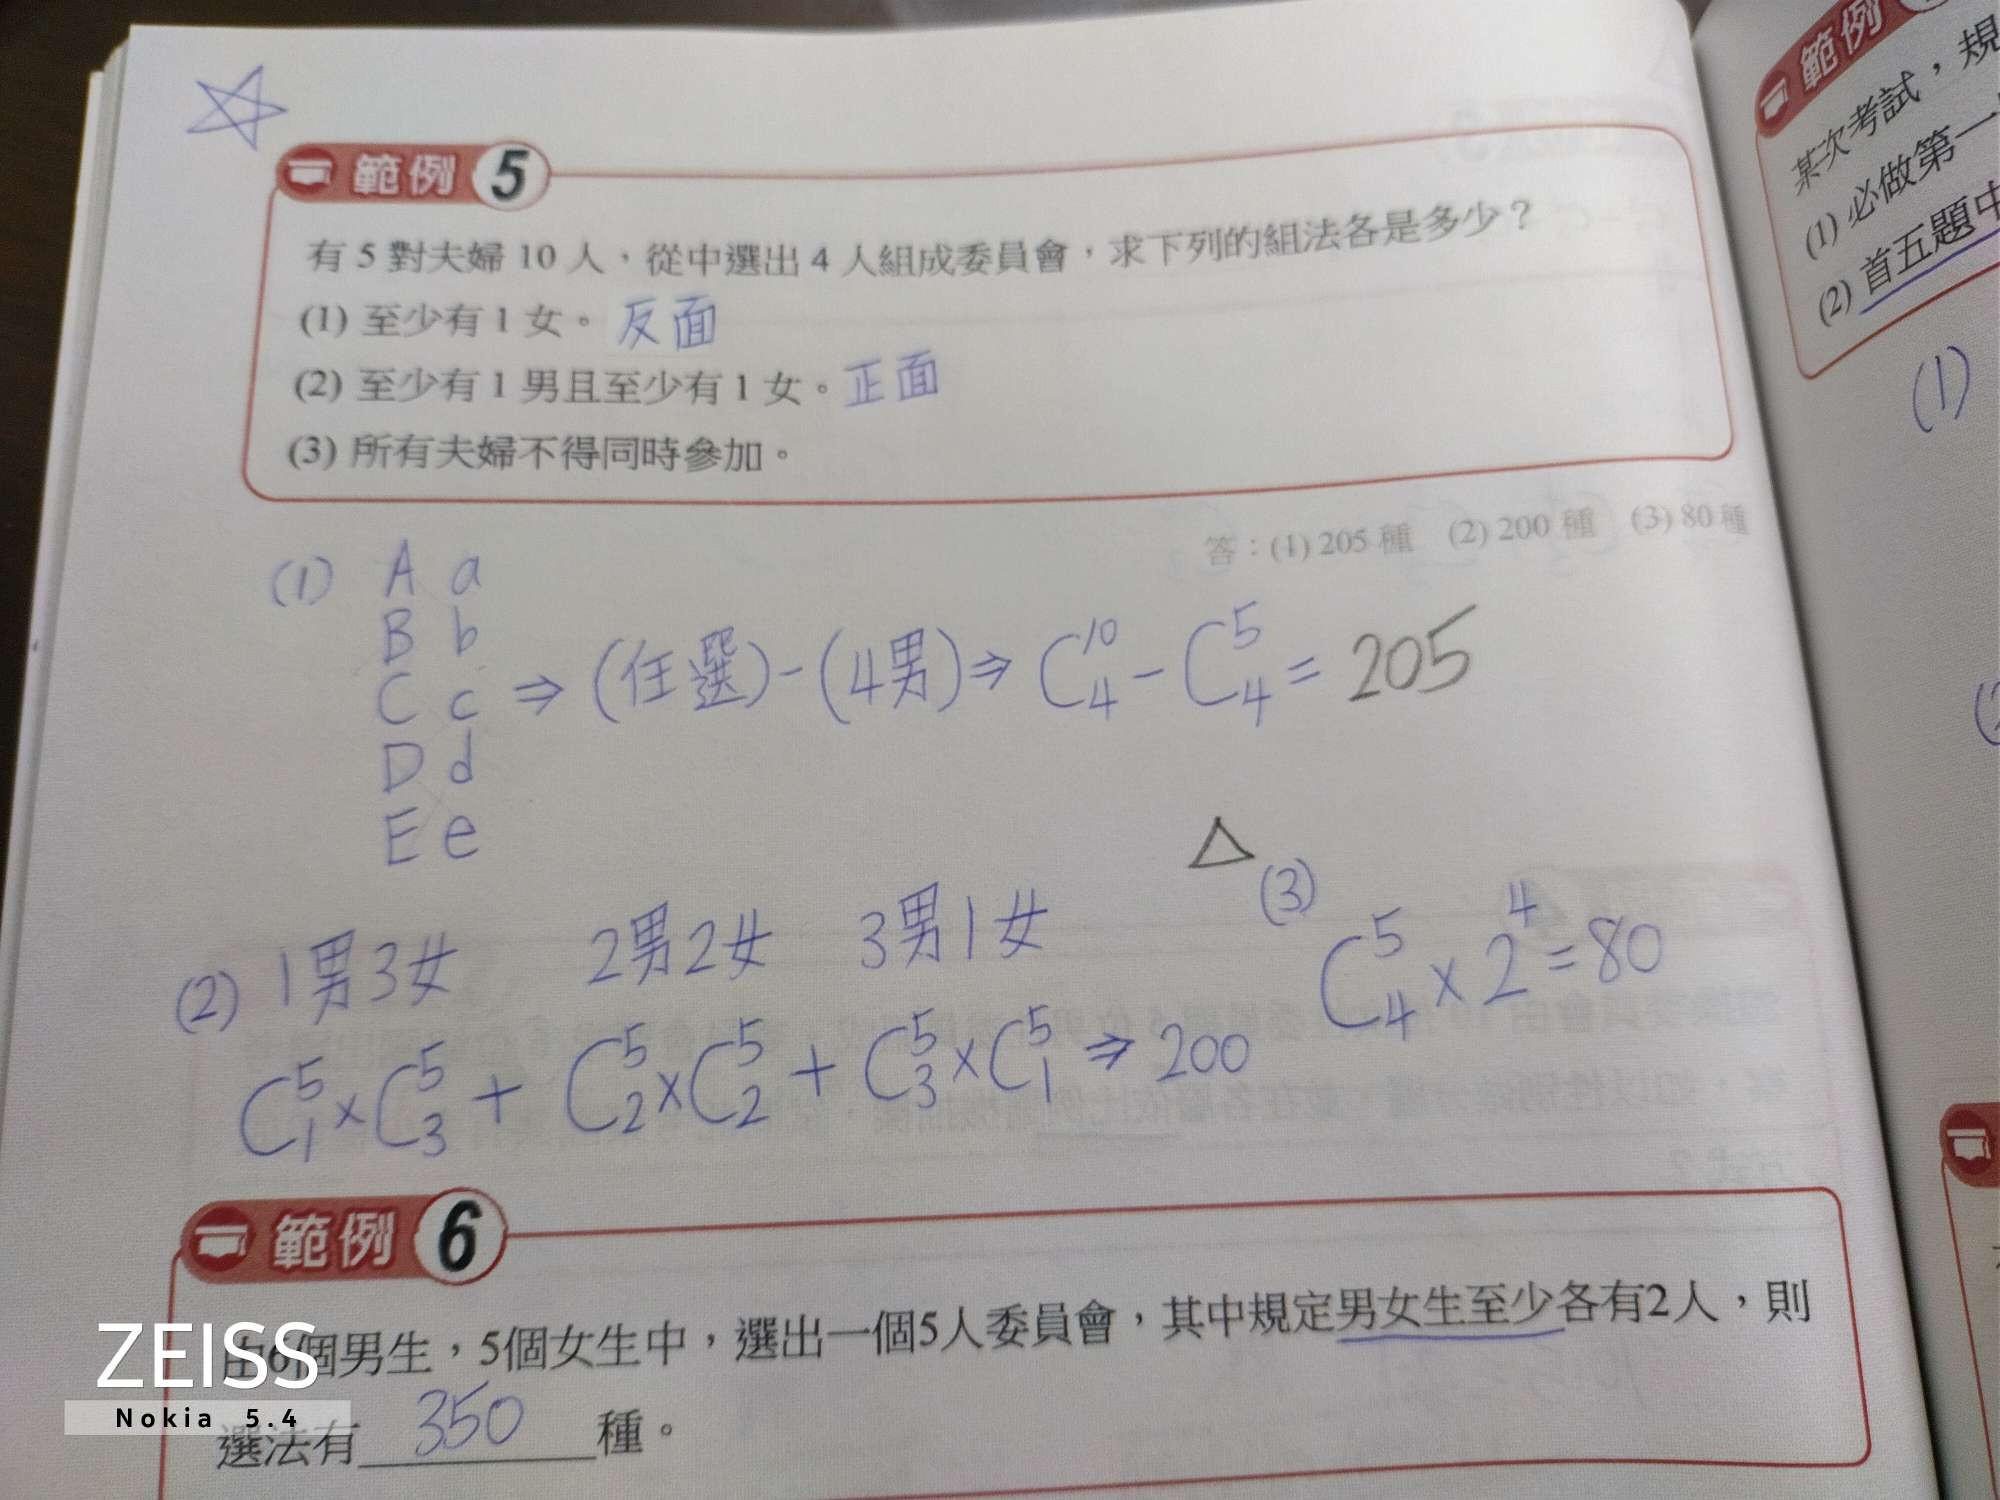 範例 5
有 5 對夫婦 10 人，從中選出 4 人組成委員會，求下列的組法各是多少？
(1) 至少有 1 女。 反面
(2) 至少有 1 男且至少有 1 女。 正面
(3) 所有夫婦不得同時參加。
答：(1) 205 種 (2) 200 種 (3) 80 種
(1) A a
B b
C c ⇒ (任選)-(4男) ⇒ C^10_4 - C^5_4 = 205
D d
E e
(2) 1男3女 2男2女 3男1女
C^5_1 × C^5_3 + C^5_2 × C^5_2 + C^5_3 × C^5_1 ⇒ 200
(3)
C^5_4 × 2^4 = 80
範例 6
由6個男生，5個女生中，選出一個5人委員會，其中規定男女生至少各有2人，則
選法有 350 種。
範例
某次考試，規
(1) 必做第一
(2) 首五題中
(1)
ZEISS
Nokia 5.4